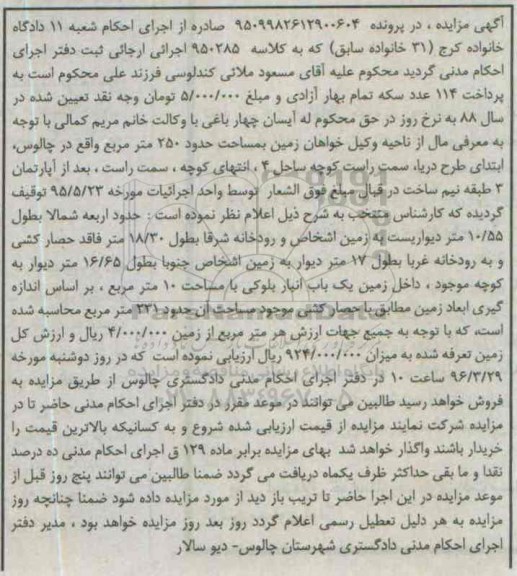 آگهی مزایده ، در پرونده ۹۵۰۹۹۸۲۶۱۲۹۰۰۶۰۴ صادره از اجرای احکام شعبه ۱۱ دادگاه
خانواده کرج (۳۱ خانواده سابق) که به کلاسه ۹۵۰۲۸۵ اجرائی ارجائی ثبت دفتر اجرای
احکام مدنی گردید محکوم علیه آقای مسعود ملائی کندلوسی فرزند علی محکوم است به
پرداخت ۱۱۴ عدد سکه تمام بهار آزادی و مبلغ ۵/۰۰۰/۰۰۰ تومان وجه نقد تعیین شده در
سال ۸۸ به نرخ روز در حق محکوم له آیسان چهار باغی با وکالت خانم مریم کمالی با توجه
به معرفی مال از ناحیه وکیل خواهان زمین بمساحت حدود ۲۵۰ متر مربع واقع در چالوس،
ابتدای طرح دریا، سمت راست کوچه ساحل ۴ ، انتهای کوچه ، سمت راست ، بعد از آپارتمان
۳ طبقه نیم ساخت در قبال مبلغ فوق الشعار توسط واحد اجرائیات مورخه ۹۵/۵/۲۳ توقیف
گردیده که کارشناس منتخب به شرح ذیل اعلام نظر نموده است : حدود اربعه شمالا بطول
۱۰/۵۵ متر دیواریست به زمین اشخاص و رودخانه شرقا بطول ۱۸/۳۰ متر فاقد حصار کشی
و به رودخانه غربا بطول ۱۷ متر دیوار به زمین اشخاص جنوبا بطول ۱۶/۶۵ متر دیوار به
کوچه موجود ، داخل زمین یک باب انبار بلوکی با مساحت ۱۰ متر مربع ، بر اساس اندازه
گیری ابعاد زمین مطابق با حصار کشی موجود مساحت آن حدود ۲۳۱ متر مربع محاسبه شده
است، که با توجه به جمیع جهات ارزش هر متر مربع از زمین ۴/۰۰۰/۰۰۰ ریال و ارزش کل
زمین تعرفه شده به میزان ۹۲۴/۰۰۰/۰۰۰ ریال ارزیابی نموده است که در روز دوشنبه مورخه
۹۶/۳/۲۹ ساعت ۱۰ در دفتر اجرای احکام مدنی دادگستری چالوس از طریق مزایده به
فروش خواهد رسید طالبین می توانند در موعد مقرر در دفتر اجرای احکام مدنی حاضر تا در
مزایده شرکت نمایند مزایده از قیمت ارزیابی شده شروع و به کسانیکه بالاترین قیمت را
خریدار باشند واگذار خواهد شد بهای مزایده برابر ماده ۱۲۹ ق اجرای احکام مدنی ده درصد
نقدا و ما بقی حداکثر ظرف یکماه دریافت می گردد ضمنا طالبین می توانند پنج روز قبل از
موعد مزایده در این اجرا حاضر تا تریب باز دید از مورد مزایده داده شود ضمنا چنانچه روز
مزایده به هر دلیل تعطیل رسمی اعلام گردد روز بعد روز مزایده خواهد بود ، مدیر دفتر
اجرای احکام مدنی دادگستری شهرستان چالوس- دیو سالار